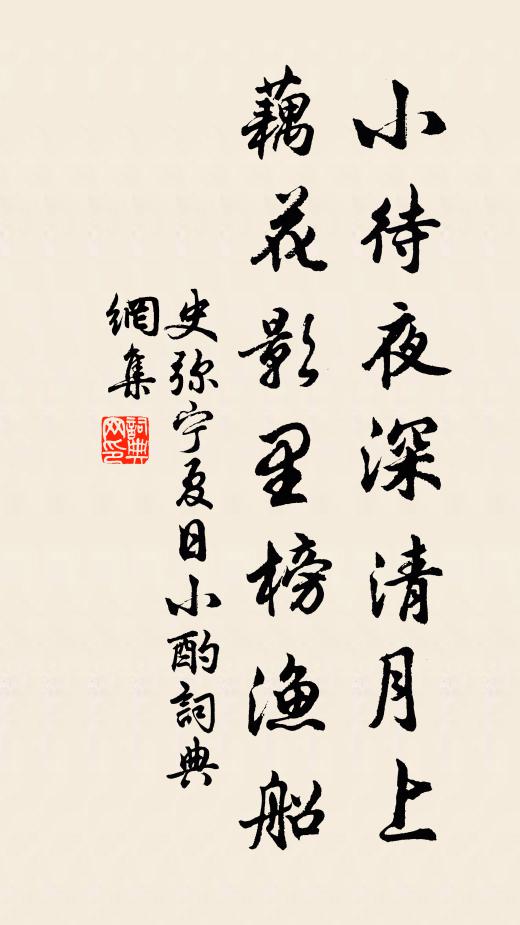 小待夜深清月上
藕花影里榜渔船
史弥宁夏日小酌詞典
網集
詞典
网印